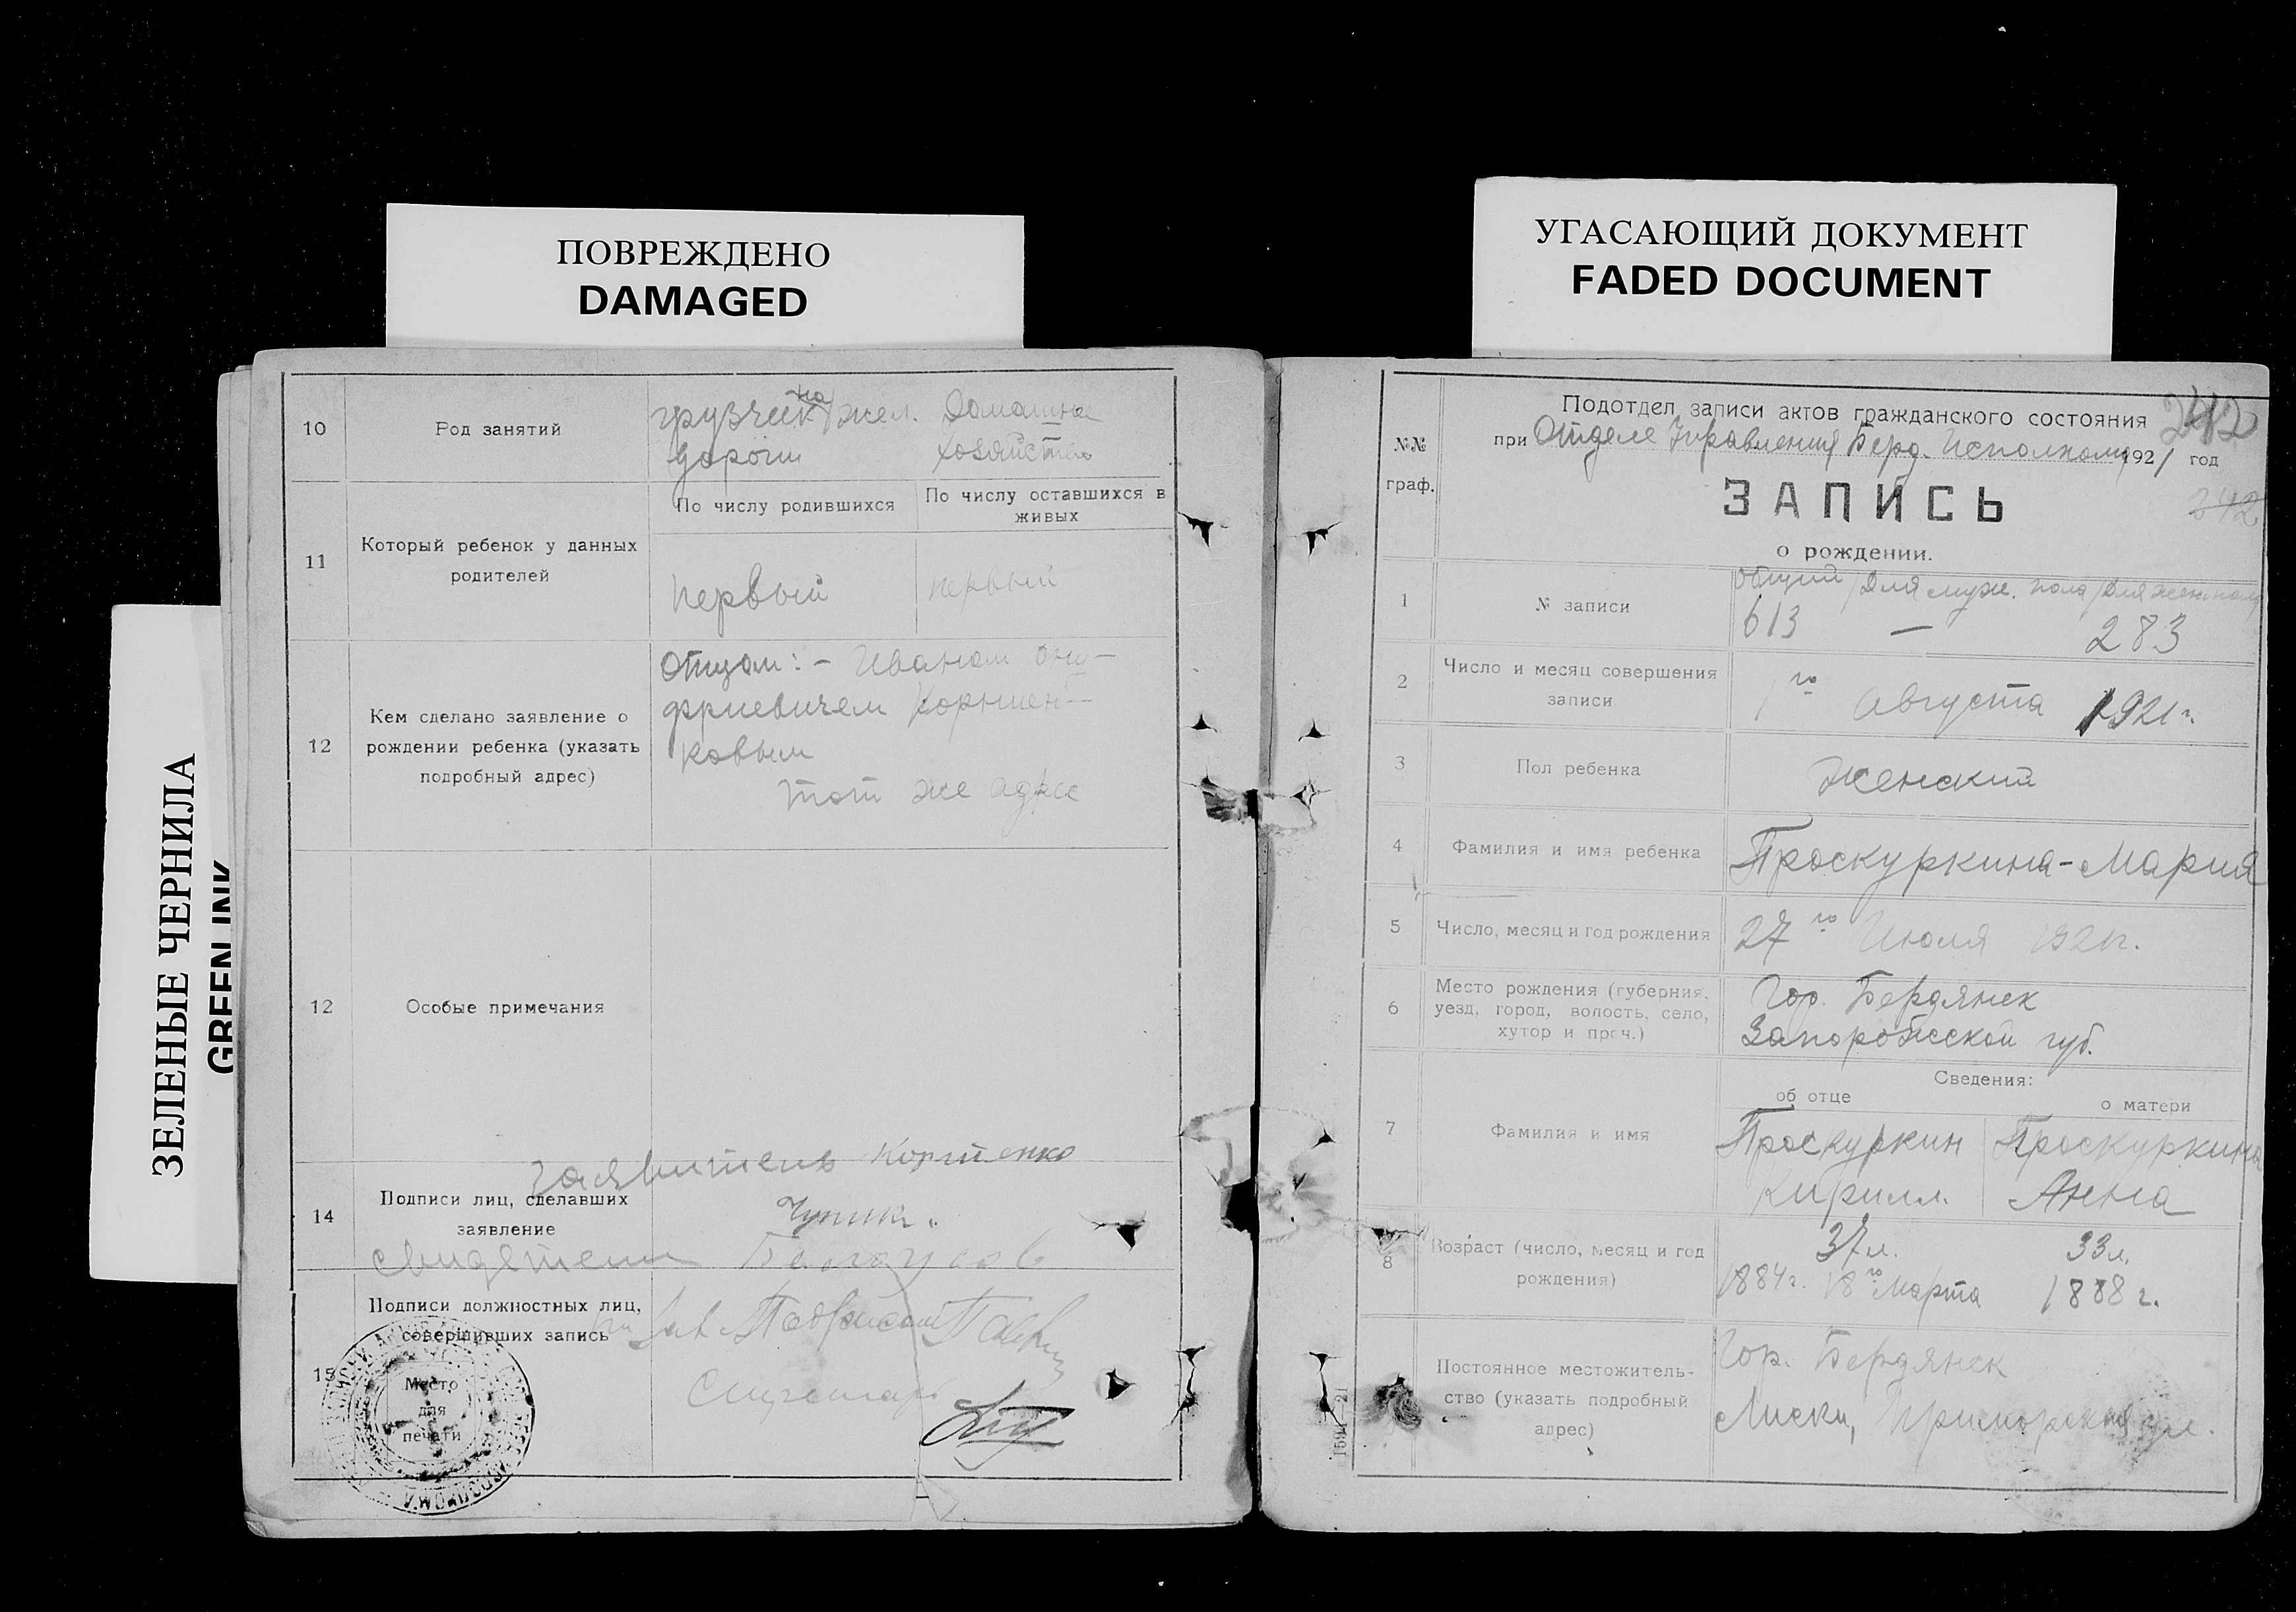 ПОВРЕЖДЕНО
DAMAGED
УГАСАЮЩИЙ ДОКУМЕНТ
FADED DOCUMENT
ЗЕЛЕНЫЕ ЧЕРНИЛА
GREEN INK
10 Род занятий
грузчик на жел. дороги
Домашнее хозяйство
11 Который ребенок у данных
родителей
По числу родившихся
По числу оставшихся в
живых
первый первый
12 Кем сделано заявление о
рождении ребенка (указать
подробный адрес)
Отцом: - Иваном Ону-
фриевичем
ковым
тот же адрес
12 Особые примечания
заявитель
14 Подписи лиц, сделавших
заявление
свидетели Белоусов
Подписи должностных лиц,
совершивших запись
15
Место
для
печати
№№
граф.
Подотдел записи актов гражданского состояния
при Отделе Управления Берд. Исполкома 1921 год
242
242
ЗАПИСЬ
о рождении.
1 № записи
общий / для муж. пола / для жен. пола
613 — 283
2 Число и месяц совершения
записи
1го Августа 1921 г.
3 Пол ребенка
Женский
4 Фамилия и имя ребенка
Проскуркина - Мария
5 Число, месяц и год рождения
27го Июля 1921г.
6 Место рождения (губерния,
уезд, город, волость, село,
хутор и проч.)
Гор. Бердянск
Запорожской губ.
Сведения:
об отце о матери
7 Фамилия и имя
Проскуркин Проскуркина
Кирилл. Анна
8 Возраст (число, месяц и год
рождения)
37 л. 33 л.
1884 г. 18го Марта 1888 г.
Постоянное местожитель-
ство (указать подробный
адрес)
Гор. Бердянск
Лиски, Приморская ул.